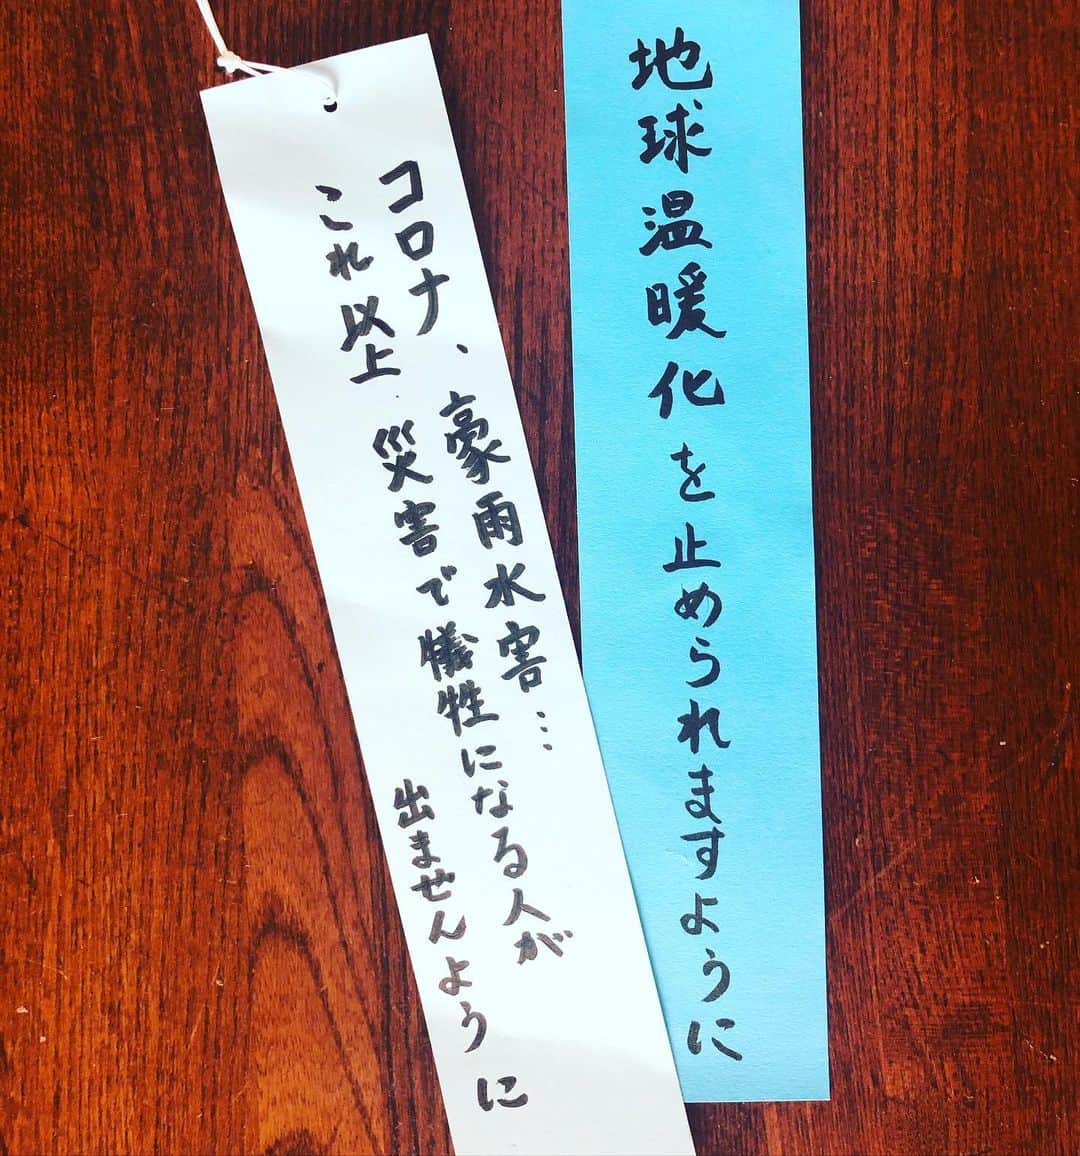 地球温暖化を止められますように
コロナ、豪雨水害…
これ以上 災害で犠牲になる人が
出ませんように